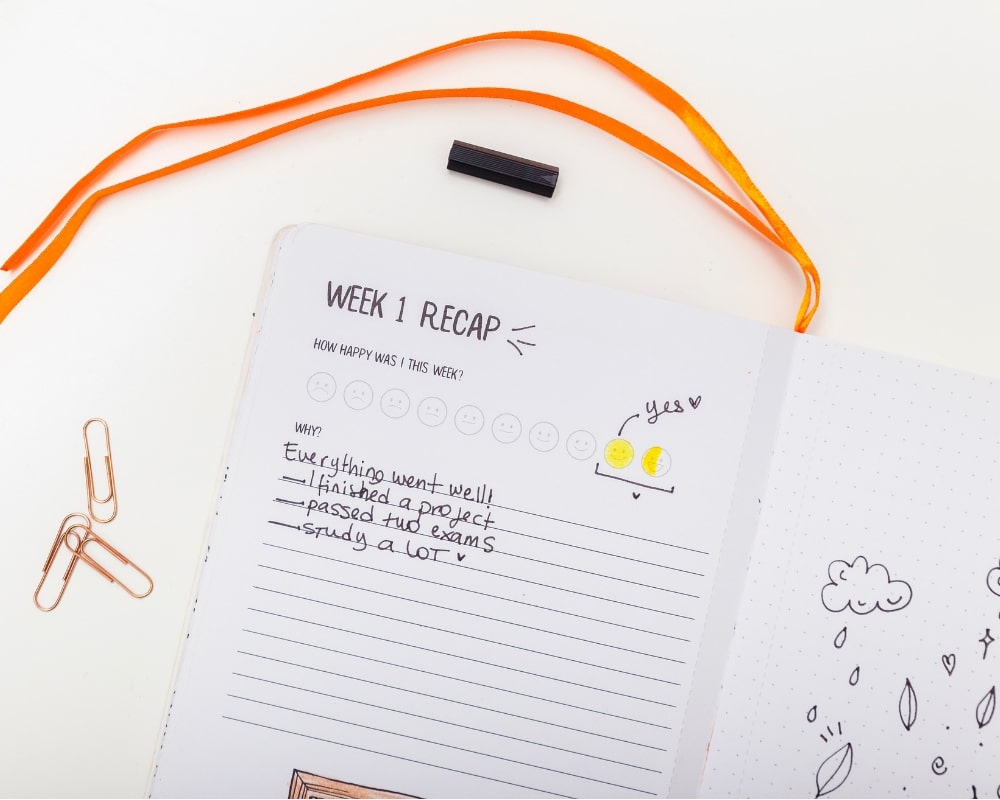 WEEK 1 RECAP
HOW HAPPY WAS I THIS WEEK?
yes
WHY?
Everything went well!
I finished a project
passed two exams
study a LOT